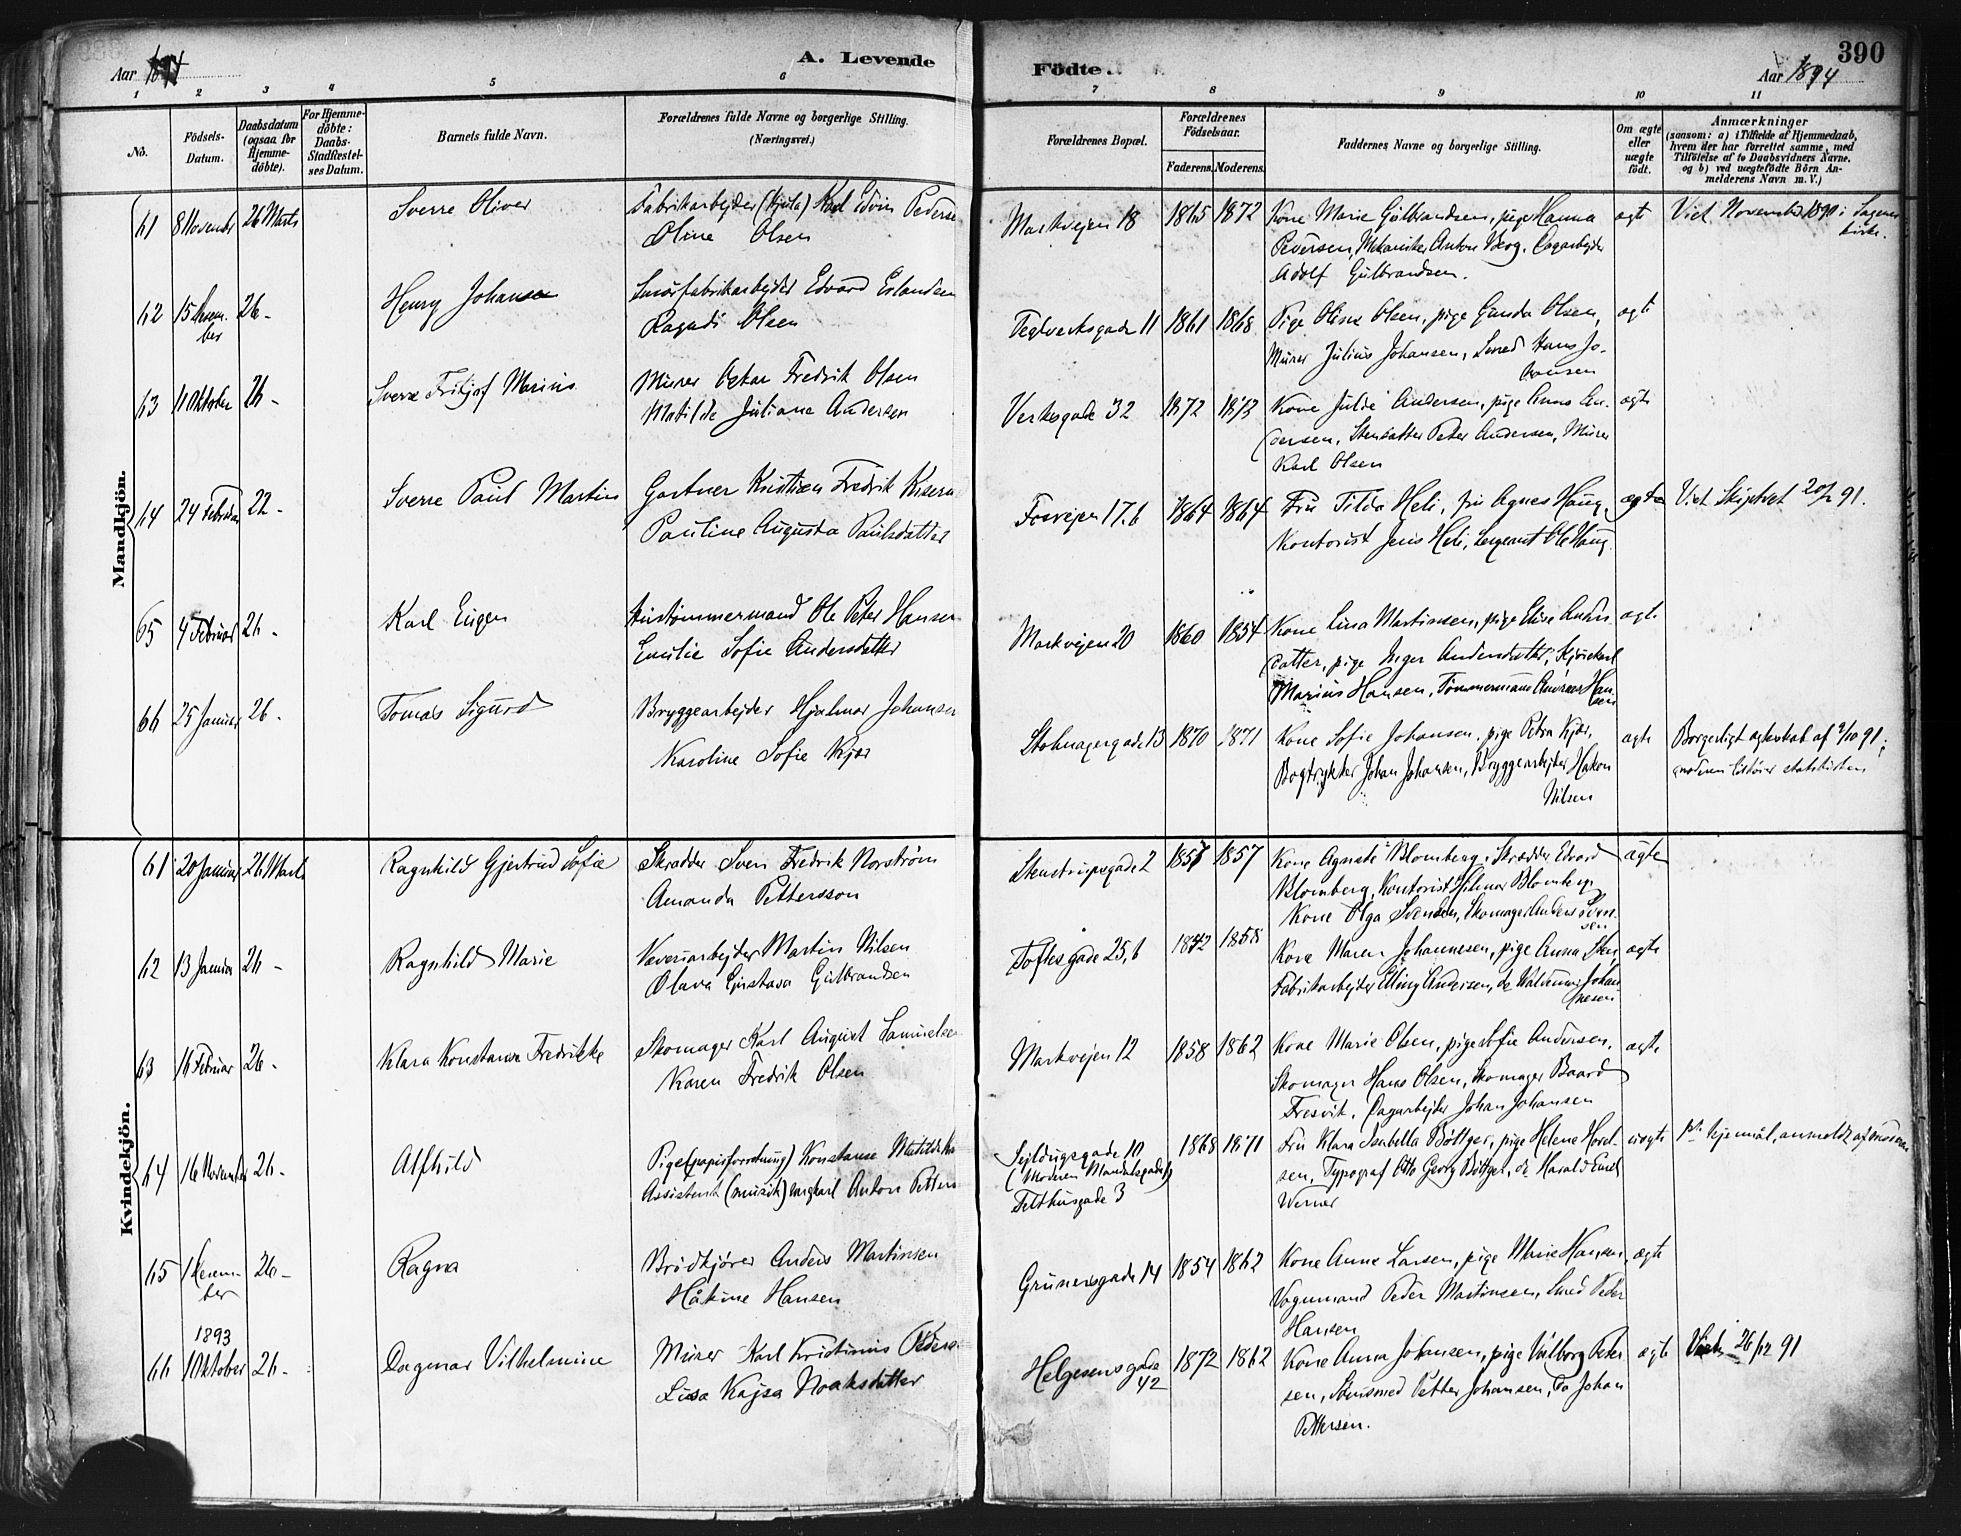 Aar 1894
A. Levende Födte.
Aar 1894
390
1 2 3 4 5 6 7 8 9 10 11
No.
Födsels-Datum.
Daabsdatum (ogsaa for Hjemme-döbte).
For Hjemme-döbte: Daabs-Stadfæstel-ses Datum.
Barnets fulde Navn.
Forældrenes fulde Navne og borgerlige Stilling. (Næringsvei.)
Forældrenes Bopæl.
Forældrenes Födselsaar.
Faderens. Moderens.
Faddernes Navne og borgerlige Stilling.
Om ægte eller uægte födt.
Anmærkninger
(saasom: a) i Tilfælde af Hjemmedaab, hvem der har forrettet samme, med Tilföielse af to Daabsvidners Navne, og b) ved uægtefödte Börn An-melderens Navn m. V.)
Mandkjön.
61 8 November 26 Marts Sverre Oliver Fabrikarbejder (Hjula) Karl Edvin Pederse
Oline Olsen
Markvejen 18 1865 1872 Kone Marie Gulbrandsen, pige Hanna
Pedersen, Mekaniker Anton Berg, Dagarbejder
Adolf Gulbrandsen.
ægte Viet November 1890 i Sagenes
kirke.
62 15 Decem-
ber 26 - Henry Johan Smörfabrikarbejder Edvard Erlandsen
Ragndi Olsen
Teglverksgade 11 1861 1868 Pige Oline Olsen, pige Gunda Olsen,
Murer Julius Johansen, Smed Hans Jo-
hansen
ægte
63 11 Oktober 26 - Sverre Fritjof Marius Murer Oskar Fredrik Olsen
Matilde Juliane Andersen
Verksgade 32 1872 1873 Kone Julie Andersen, pige Anna An-
dersen, Stensætter Peter Andersen, Murer
Karl Olsen
ægte
64 24 Februar 22 - Sverre Paul Martin Gartner Kristian Fredrik
Pauline Augusta Paulsdatter
Fosvejen 17.b 1864 1864 Fru Tilda Heli, fru Agnes Haug,
Kontorist Jens Heli, Sergeant Ole Haug.
ægte Viet Skiptvet 20/2 91.
65 4 Februar 26 - Karl Eugen Hustømmermand Ole Peter Hansen
Emilie Sofie Andersdatter
Markvejen 20 1860 1854 Kone Lina Martinsen, pige Elise Anders
datter, pige Inger Andersdatter, Kjörekarl
Marius Hansen, Tömmermand Andreas Han-
sen
ægte
66 25 Januar 26 - Tomas Sigurd Bryggearbejder Hjalmar Johansen
Karoline Sofie Kjær
Stolmagergade 13 1870 1871 Kone Sofie Johansen, pige Petra Kjær,
Bogtrykker Johan Johansen, Bryggearbejder Hakon
Nilsen
ægte Borgerligt ægteskab af 9/10 91;
moderen tilhører statskirken
Kvindekjön.
61 20 Januar 26 Marts Ragnhild Gjertrud Sofie Skrædder Sven Fredrik Norström
Amanda Pettersson
Stenstrupsgade 2 1857 1857 Kone Agnete Blomberg, Skrædder Edvard
Blomberg, Kontorist Hilmar Blomberg,
Kone Olga Svendsen, Skomager Anders Svend-
sen
ægte
62 13 Januar 26 - Ragnhild Marie Væveriarbejder Martin Nilsen
Olava Gustava Gulbrandsen
Toftesgade 25,b 1842 1858 Kone Maren Johannesen, pige Anna Sten,
Fabrikarbejder Elling Andersen, do Valdemar Johan-
nesen
ægte
63 16 Februar 26 - Klara Konstanse Fredrikke Skomager Karl August Samuelsen
Karen Fredrik Olsen
Markvejen 12 1858 1862 Kone Marie Olsen, pige Sofie Andersen,
Skomager Hans Olsen, Skomager Baard
Fresvik, Dagarbejder Johan Johansen
ægte
64 16 November 26 - Alfhild Pige (papirforretning) Konstanse Matilde
Assistent (musik) ungkarl Anton Petters
Sejldugsgade 10
(Moderen Mandalsgade)
Telthusgade 3
1868 1871 Fru Klara Isabella Böttger, pige Helene Harel-
sen, Typograf Otto Georg Böttger, do Harald Emil
Werner
uægte 1ste lejermål, anmeldt af moderen
65 1 Decem-
ber 26 - Ragna Brödkjörer Anders Martinsen
Håkine Hansen
Grünersgade 14 1854 1862 Kone Anne Larsen, pige Marie Hansen,
Vognmand Peder Martinsen, Smed Peder
Hansen
ægte
66 1893
1 Oktober 26 - Dagmar Vilhelmine Murer Karl Kristinus Peders
Lisa Kajsa Noaksdatter
Helgesensgade
42 1872 1862 Kone Anna Johansen, pige Valborg Peter
sen, Petter Johansen, do Johan
Pettersen.
ægte Viet 26/12 91